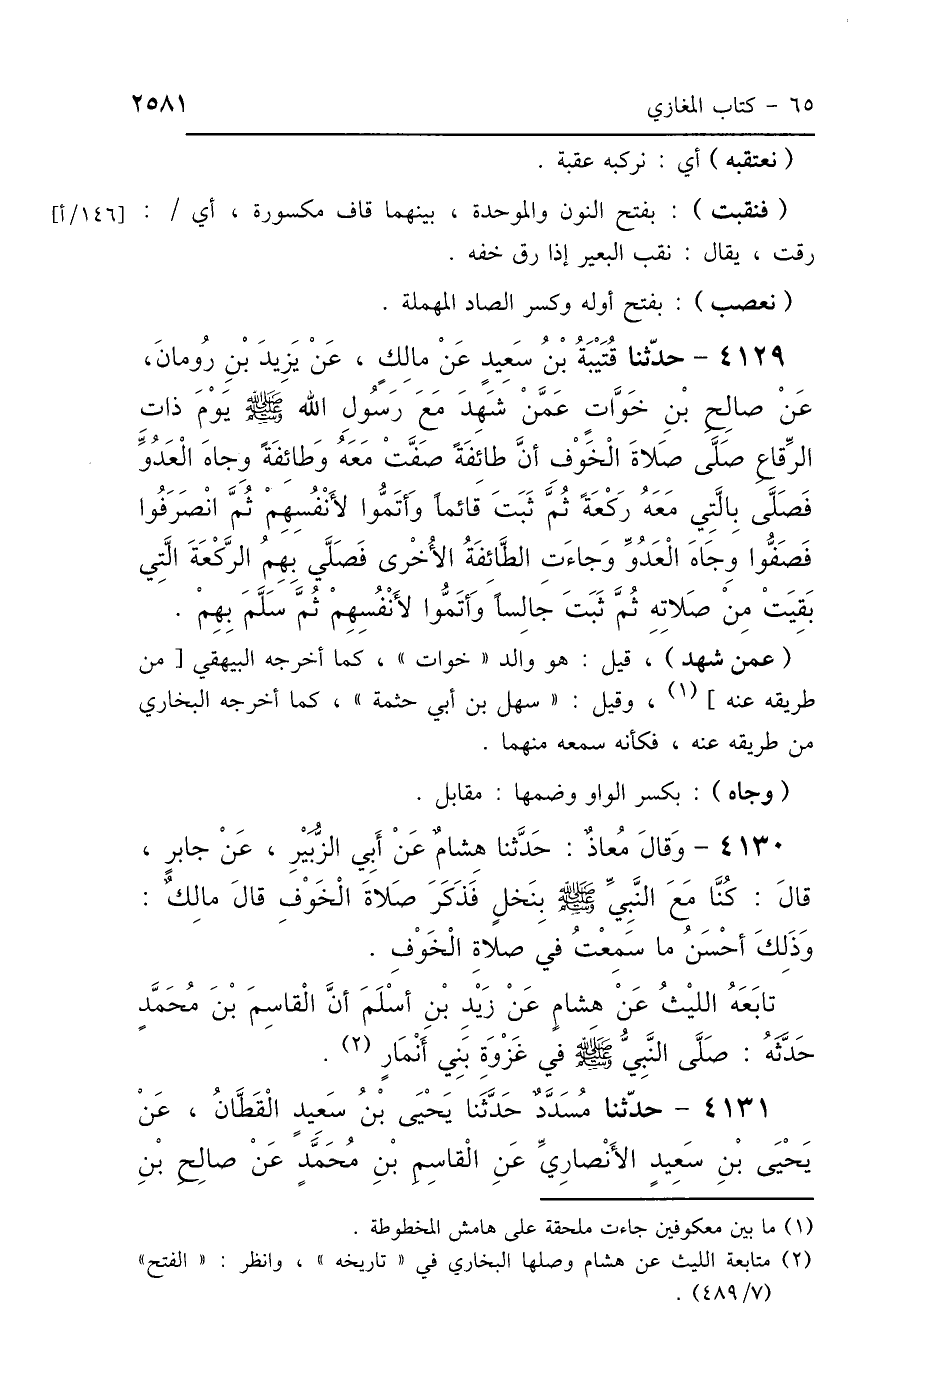 ٦٥ - كتاب المغازي ٢٥٨١
( نعتقبه ) أي : نركبه عقبة .
( فنقبت ) : بفتح النون والموحدة ، بينهما قاف مكسورة ، أي / : [١٤٦/أ]
رقت ، يقال : نقب البعير إذا رق خفه .
( نعصب ) : بفتح أوله وكسر الصاد المهملة .
٤١٢٩ - حدّثنا قُتَيْبَةُ بْنُ سَعِيدٍ عَنْ مالِكٍ ، عَنْ يَزِيدَ بْنِ رُومانَ،
عَنْ صالِحِ بْنِ خَوَّاتٍ عَمَّنْ شَهِدَ مَعَ رَسُولِ الله ﷺ يَوْمَ ذات
الرِّقاعِ صَلَّى صَلاةَ الْخَوْفِ أنَّ طائِفَةً صَفَّتْ مَعَهُ وَطائِفَةً وِجاهَ الْعَدُوِّ
فَصَلَّى بِالَّتِي مَعَهُ رَكْعَةً ثُمَّ ثَبَتَ قائماً وَأتَمُّوا لأَنْفُسِهِمْ ثُمَّ انْصَرَفُوا
فَصَفُّوا وِجَاهَ الْعَدُوِّ وَجاءَتِ الطَّائِفَةُ الأُخْرى فَصَلَّي بِهِمُ الرَّكْعَةَ الَّتِي
بَقِيَتْ مِنْ صَلاتِهِ ثُمَّ ثَبَتَ جالِساً وَأتَمُّوا لأَنْفُسِهِمْ ثُمَّ سَلَّمَ بِهِمْ .
( عمن شهد ) ، قيل : هو والد « خوات » ، كما أخرجه البيهقي [ من
طريقه عنه ] (١) ، وقيل : « سهل بن أبي حثمة » ، كما أخرجه البخاري
من طريقه عنه ، فكأنه سمعه منهما .
( وجاه ) : بكسر الواو وضمها : مقابل .
٤١٣٠ - وَقالَ مُعاذٌ : حَدَّثَنا هِشامٌ عَنْ أَبِي الزُّبَيْرِ ، عَنْ جابِرٍ ،
قالَ : كُنَّا مَعَ النَّبِيِّ ﷺ بِنَخلٍ فَذَكَرَ صَلاةَ الْخَوْفِ قالَ مالِكٌ :
وَذَلِكَ أحْسَنُ ما سَمِعْتُ في صلاةِ الْخَوْفِ .
تابَعَهُ الليْثُ عَنْ هِشامٍ عَنْ زَيْدِ بْنِ أسْلَمَ أنَّ الْقاسِمَ بْنَ مُحَمَّدٍ
حَدَّثَهُ : صَلَّى النَّبِيُّ ﷺ في غَزْوَةِ بَنِي أَنْمَارٍ (٢) .
٤١٣١ - حدّثنا مُسَدَّدٌ حَدَّثَنا يَحْيَى بْنُ سَعِيدٍ الْقَطَّانُ ، عَنْ
يَحْيَى بْنِ سَعِيدٍ الأَنْصارِيِّ عَنِ الْقاسِمِ بْنِ مُحَمَّدٍ عَنْ صالِحِ بْنِ
(١) ما بين معكوفين جاءت ملحقة على هامش المخطوطة .
(٢) متابعة الليث عن هشام وصلها البخاري في « تاريخه » ، وانظر : « الفتح»
(٤٨٩/٧) .